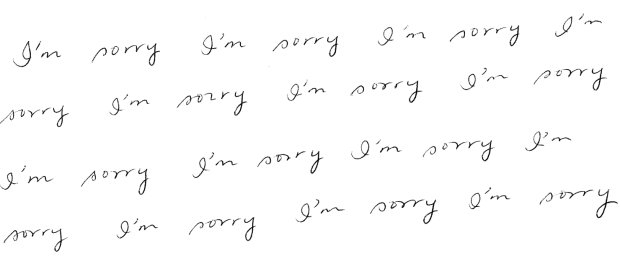 I'm sorry I'm sorry I'm sorry I'm
sorry I'm sorry I'm sorry I'm sorry
I'm sorry I'm sorry I'm sorry I'm
sorry I'm sorry I'm sorry I'm sorry